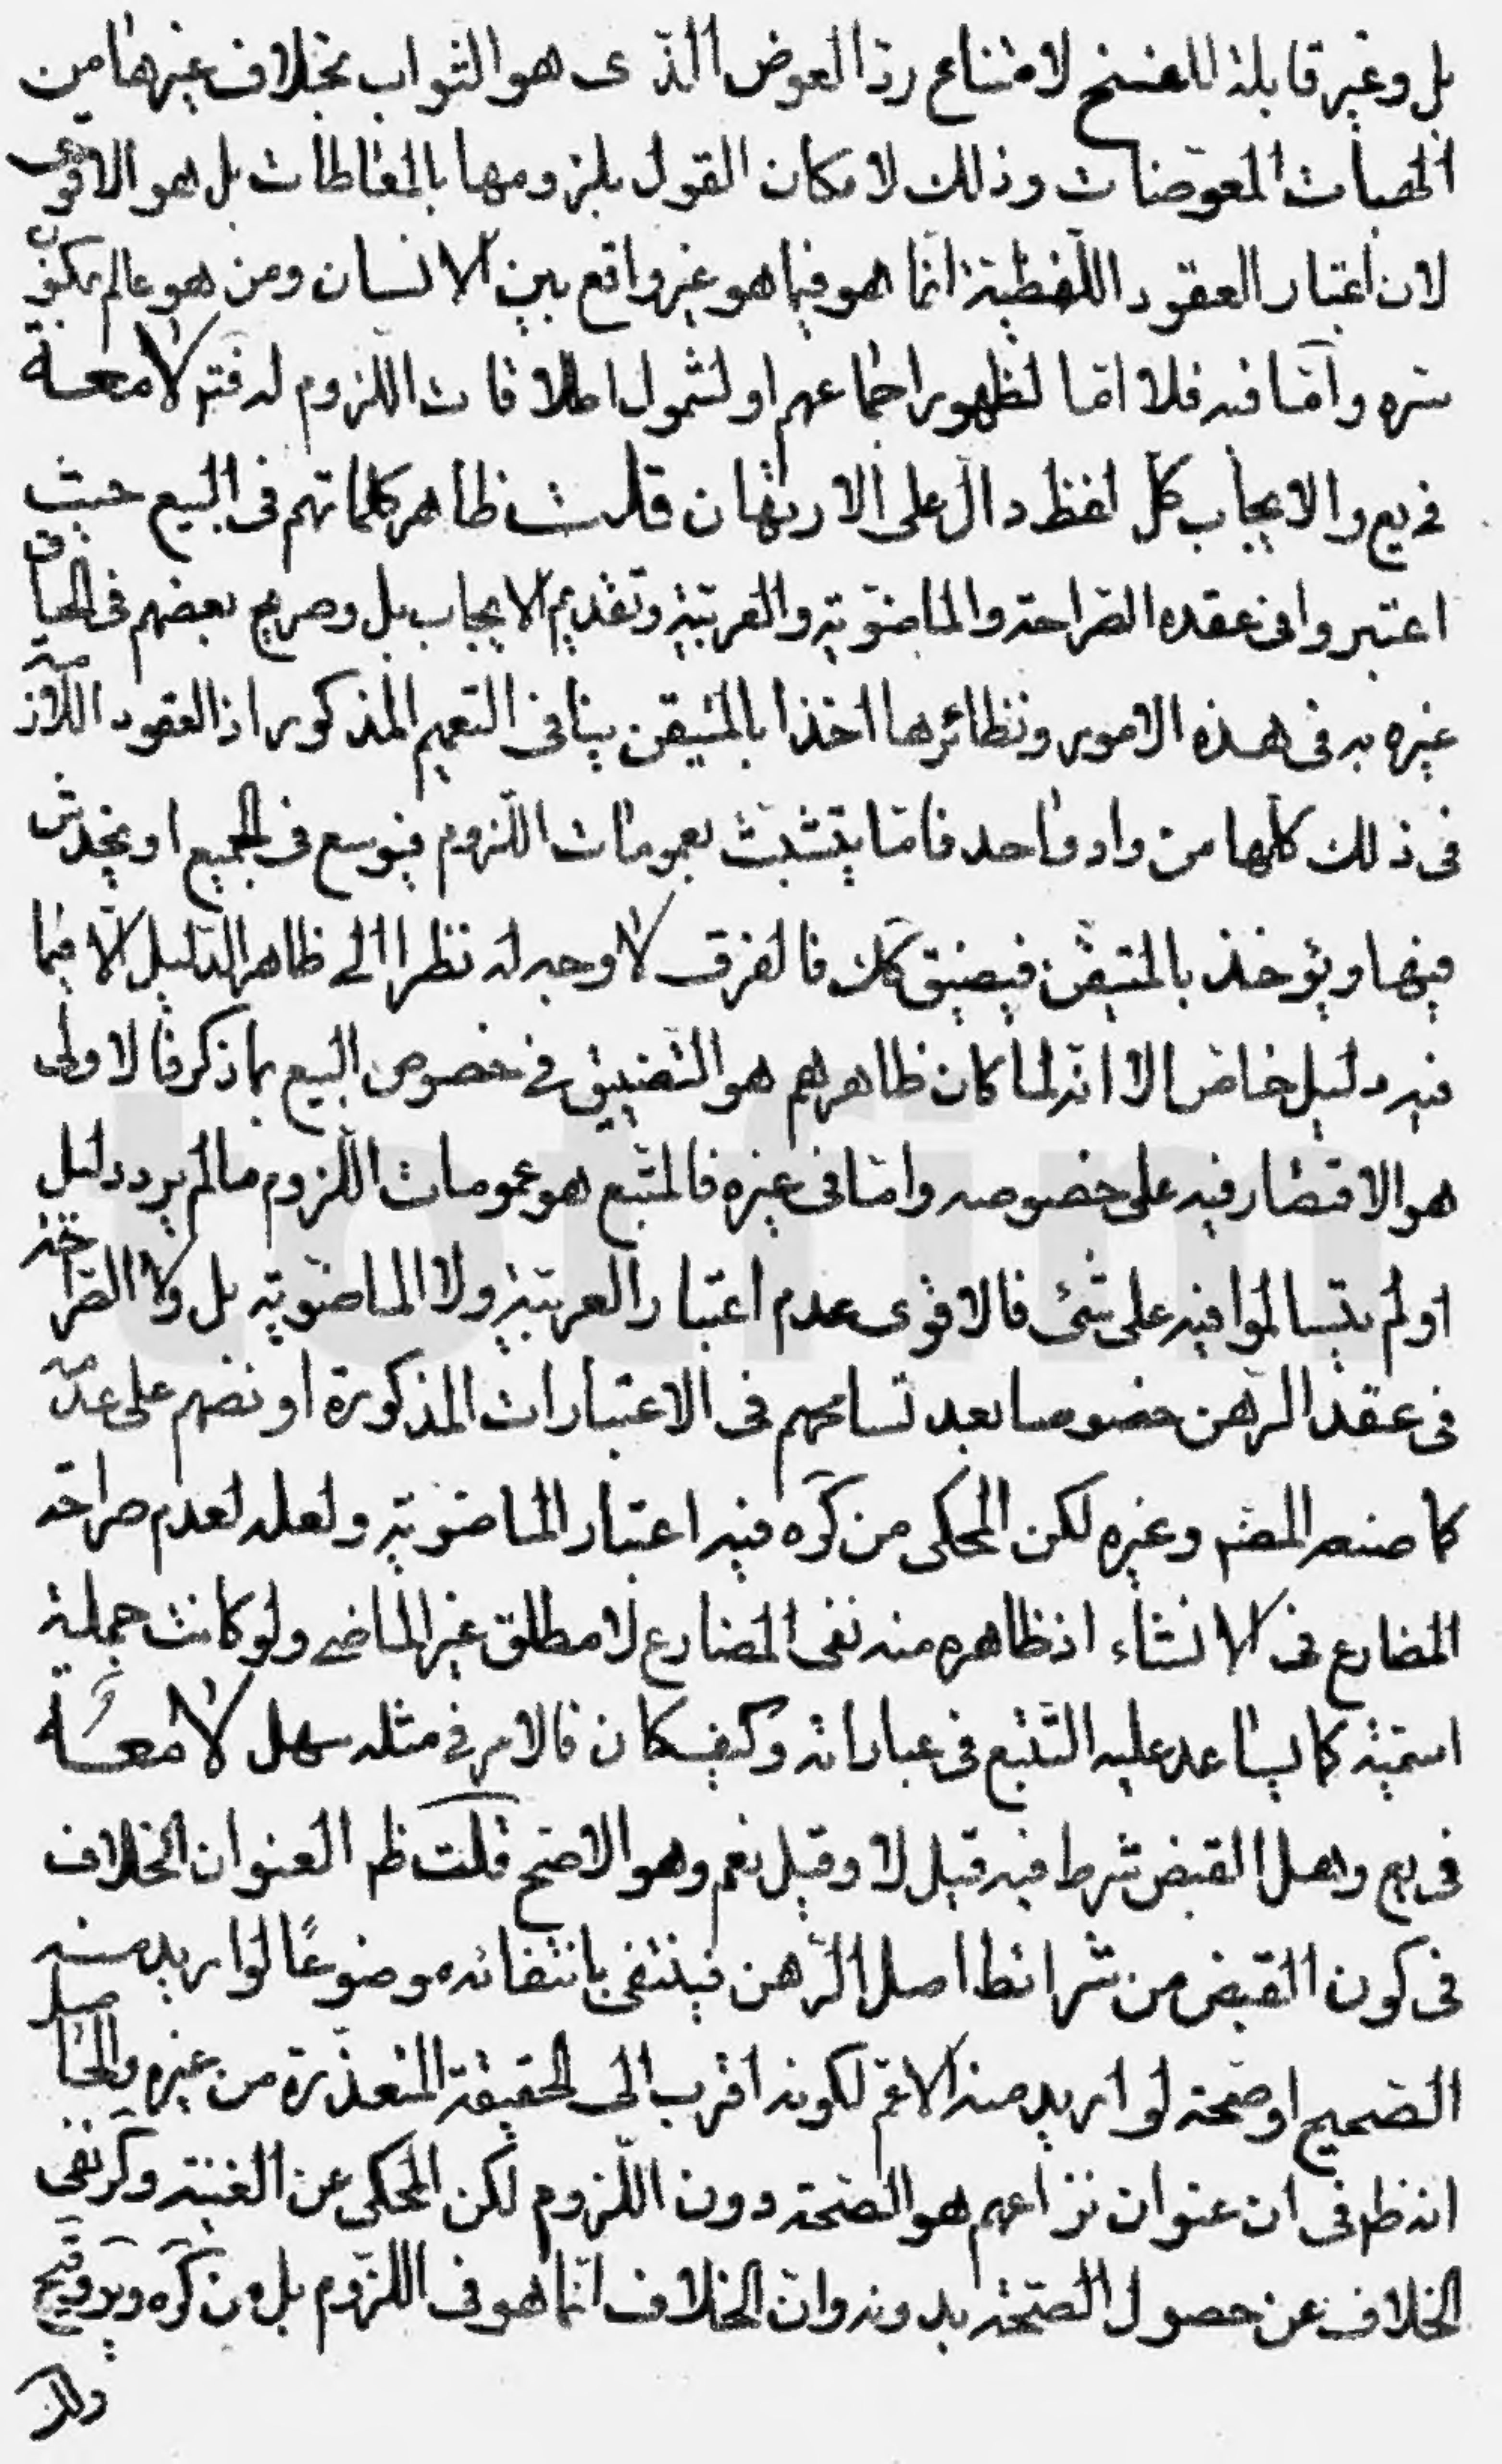 بل وغير قابلة للفسخ لامتناع ردّ العوض الذى هو الثواب بخلاف غيرها من
الهبات المعوضات وذلك لامكان القول بلزومها بالمعاطات بل هو الاقوى
لان اعتبار العقود اللّفظيّة انّما هو فيما هو غير واقع بين الانسان ومن هو عالم بمكنون
سرّه وامّا فيه فلا امّا لظهور اجماعهم او لشمول اطلاقات اللزوم له فتم لا معه
فى يع والايجاب كلّ لفظ دالّ على الارتهان قلت ظاهر كلماتهم فى البيع حيث
اعتبروا فى عقده الصّراحة والماضويّة والعربيّة وتقديم الايجاب بل وصريح بعضهم فى الحاق
غيره به فى هذه الامور ونظائرها اخذا بالمتيقن ينافى التعميم المذكور اذ العقود اللّازمة
فى ذلك كلّها من واد واحد فامّا يتشبّث بعمومات اللّزوم فيوسع فى الجميع او يخدش
فيها ويؤخذ بالمتيقّن فيضيق كك فالفرق لا وجه له نظرا الى ظاهر الدّليل الّا فيما
فيه دليل خاصّ الا انّه لما كان ظاهرهم هو التّضييق فى خصوص البيع بما ذكر فالاولى
هو الاقتصار فيه على خصوصه وامّا فى غيره فالمتّبع هو عمومات اللّزوم ما لم يرد دليل
او لم يتسالموا فيه على شئ فالاقوى عدم اعتبار العربيّة ولا الماضويّة بل ولا الصّراحة
فى عقد الرّهن خصوصا بعد تسامحهم فى الاعتبارات المذكورة او نصّهم على عدمه
كما صنعه المصّ وغيره لكن المحكى من كره فيه اعتبار الماضويّة ولعله لعدم صراحة
المضارع فى الانشاء اذ ظاهره منه نفى المضارع لا مطلق غير الماضى ولو كانت جملية
اسميّة كما يساعد عليه التّتبع فى عباراته وكيفكان فالامر فى مثله سهل لا معه
فى يع وهل القبض شرط فيه قيل لا وقيل نعم وهو الاصحّ قلت ظم العنوان الخلاف
فى كون القبض من شرائط اصل الرّهن فينتفى بانتفائه موضوعًا لو اريد منه
الصّحيح او صحّة لو اريد منه الاعمّ لكونه اقرب الى الحقيقة المتعذّرة من غيره والحاصل
انه ظم فى ان عنوان نزاعهم هو الصّحّة دون اللّزوم لكن المحكى عن الغنية وكر نفى
الخلاف عن حصول الصّحّة بدونه وان الخلاف انّما هو فى اللّزوم بل من كره
ولك